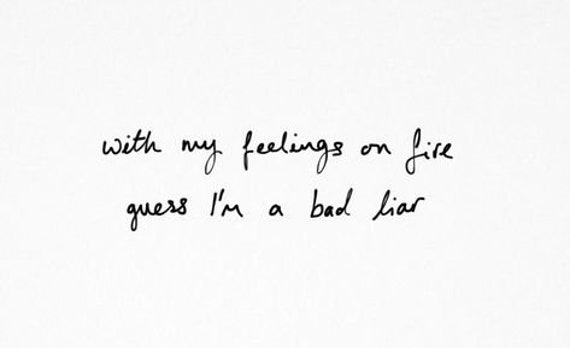 with my feelings on fire
guess I'm a bad liar